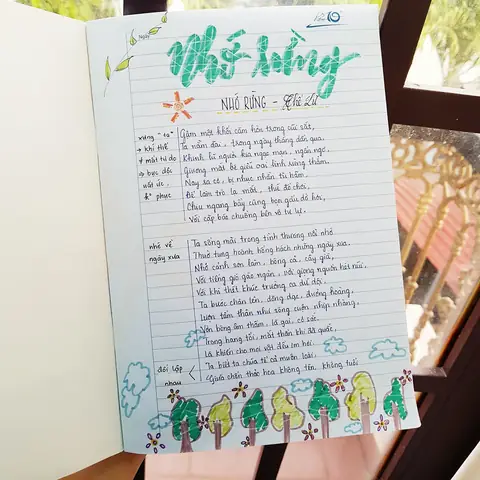 Ngày
Nhớ rừng
NHỚ RỪNG - Thế Lữ
xưng "ta"
→ khí thế
≠ mất tự do
→ bực dọc
uất ức,
k° phục
Gậm một khối căm hờn trong cũi sắt,
Ta nằm dài, trông ngày tháng dần qua.
Khinh lũ người kia ngạo mạn, ngẩn ngơ,
Giương mắt bé giễu oai linh rừng thẳm.
Nay sa cơ, bị nhục nhằn tù hãm,
Để làm trò lạ mắt, thứ đồ chơi,
Chịu ngang bầy cùng bọn gấu dở hơi,
Với cặp báo chuồng bên vô tư lự.
nhớ về
ngày xưa
Ta sống mãi trong tình thương nỗi nhớ
Thuở tung hoành hống hách những ngày xưa.
Nhớ cảnh sơn lâm, bóng cả, cây già,
Với tiếng gió gào ngàn, với giọng nguồn hét núi,
Với khi thét khúc trường ca dữ dội,
Ta bước chân lên, dõng dạc, đường hoàng,
Lượn tấm thân như sóng cuộn nhịp nhàng,
Vờn bóng âm thầm, lá gai, cỏ sắc.
Trong hang tối, mắt thần khi đã quắc,
Là khiến cho mọi vật đều im hơi.
đối lập
nhau
Ta biết ta chúa tể cả muôn loài,
Giữa chốn thảo hoa không tên, không tuổi